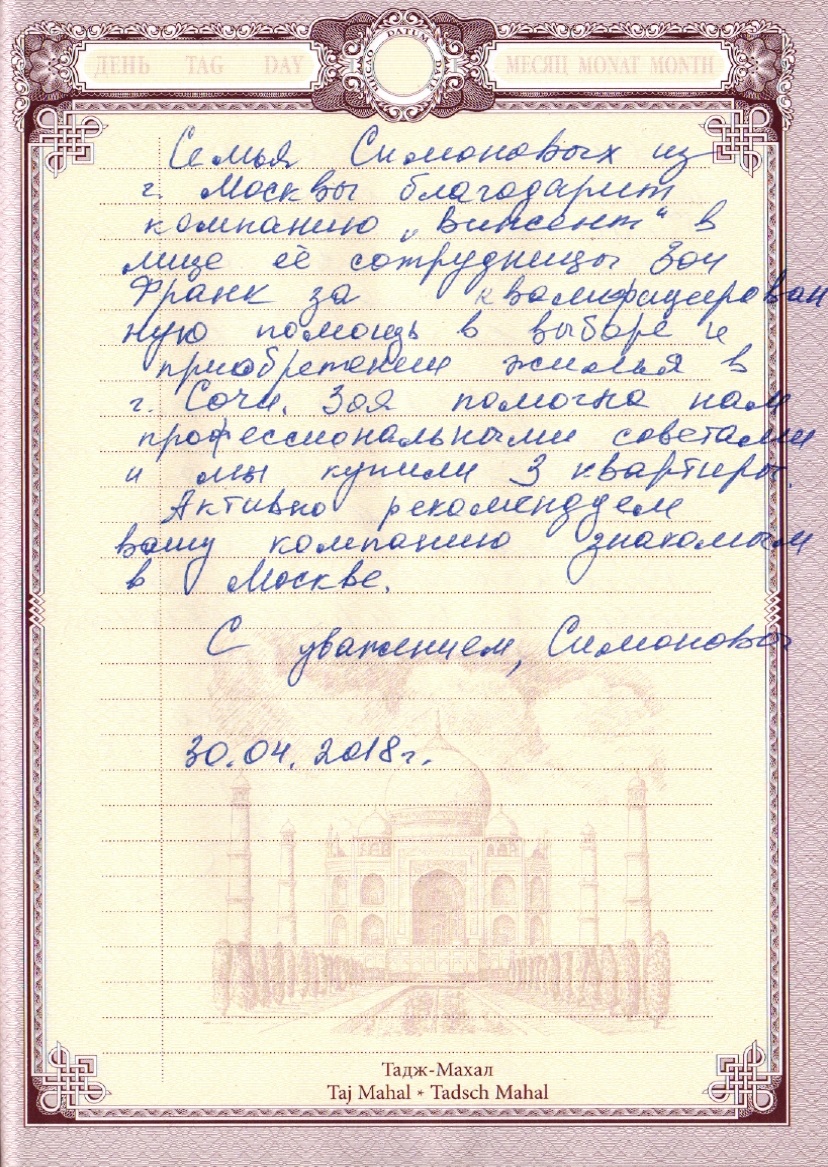 ДЕНЬ TAG DAY
ЧИСЛО DATUM DATE
МЕСЯЦ MONAT MONTH
Семья Симоновых из
г. Москвы благодарит
компанию „Винсент“ в
лице её сотрудницы Зои
Франк за квалифицирован
ную помощь в выборе и
приобретении жилья в
г. Сочи. Зоя помогла нам
профессиональными советами
и мы купили 3 квартиры.
Активно рекомендуем
вашу компанию знакомым
в Москве.
С уважением, Симоновы
30.04.2018г.
Тадж-Махал
Taj Mahal * Tadsch Mahal